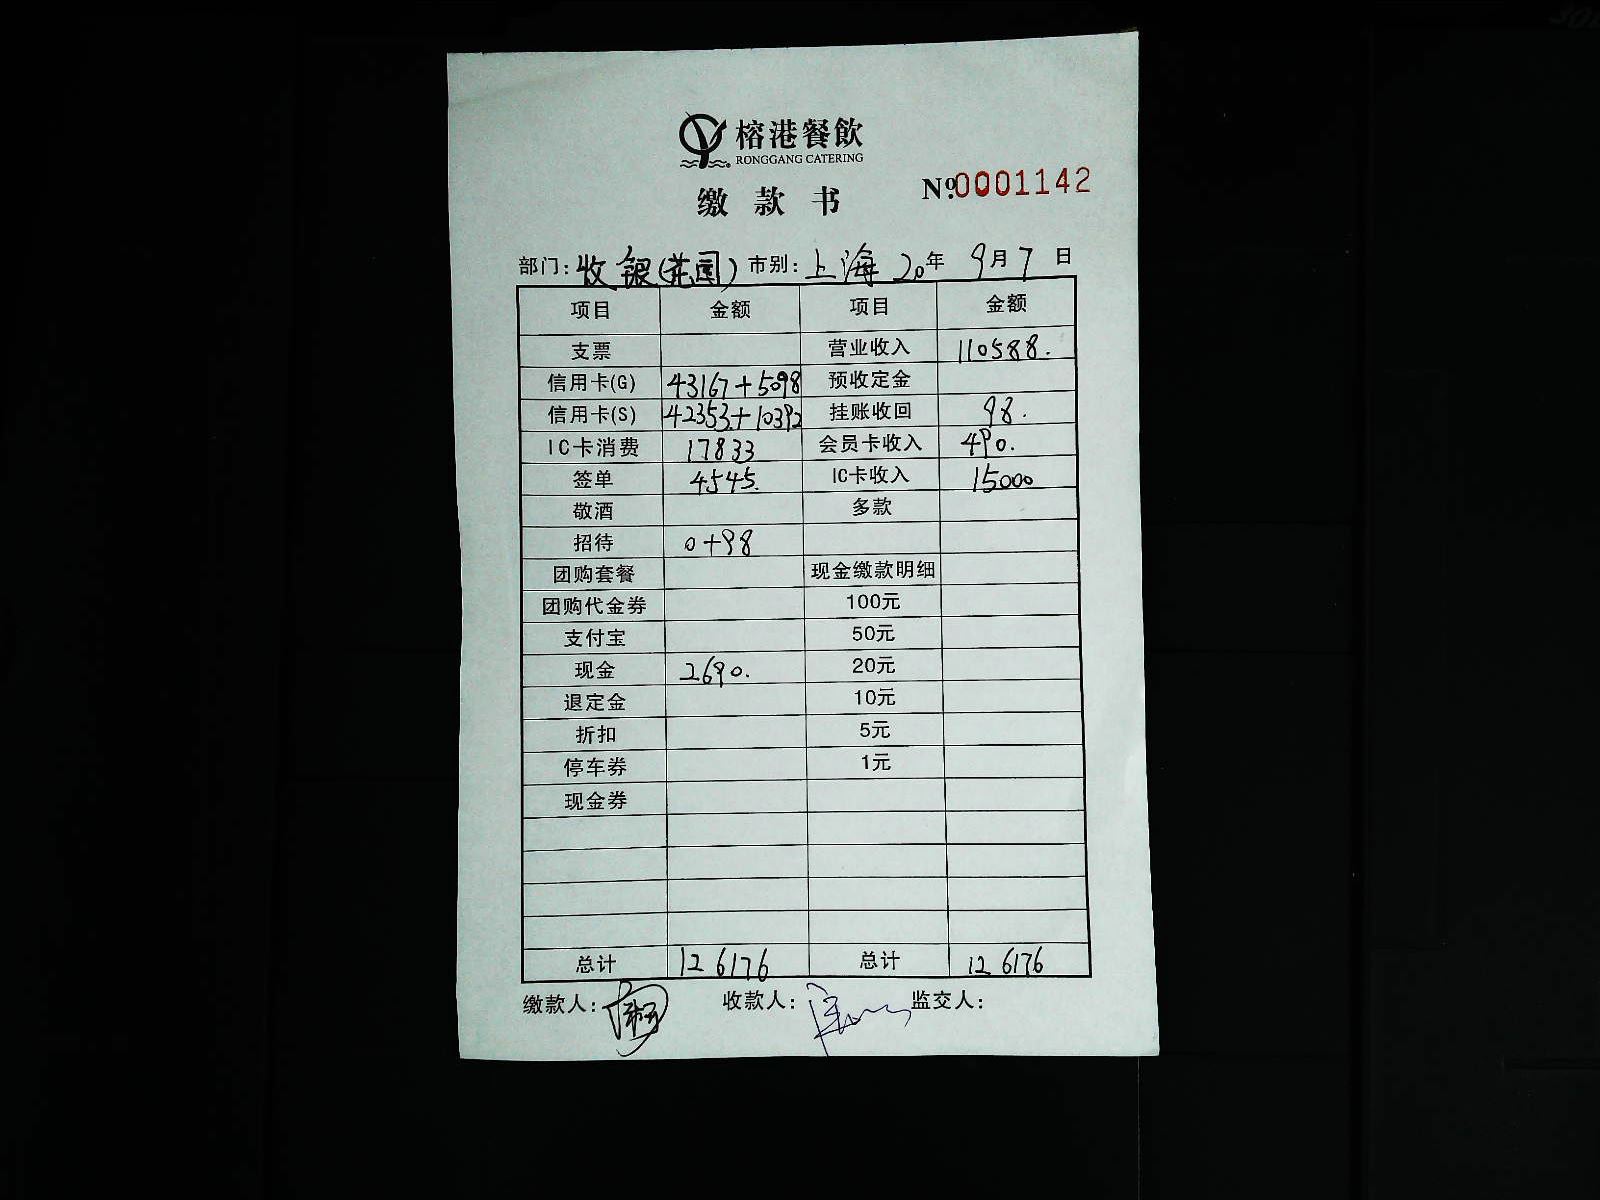 榕港餐飲
RONGGANG CATERING
缴款书
№0001142
部门:收银(花园) 市别:上海 20年 9月7日
项目 金额 项目 金额
支票 营业收入 110588.
信用卡(G) 43167+5098 预收定金
信用卡(S) 42353+10392 挂账收回 98.
IC卡消费 17833 会员卡收入 490.
签单 4545. IC卡收入 15000
敬酒 多款
招待 0+98
团购套餐 现金缴款明细
团购代金券 100元
支付宝 50元
现金 2690. 20元
退定金 10元
折扣 5元
停车券 1元
现金券
总计 126176 总计 126176
缴款人: 收款人: 监交人: